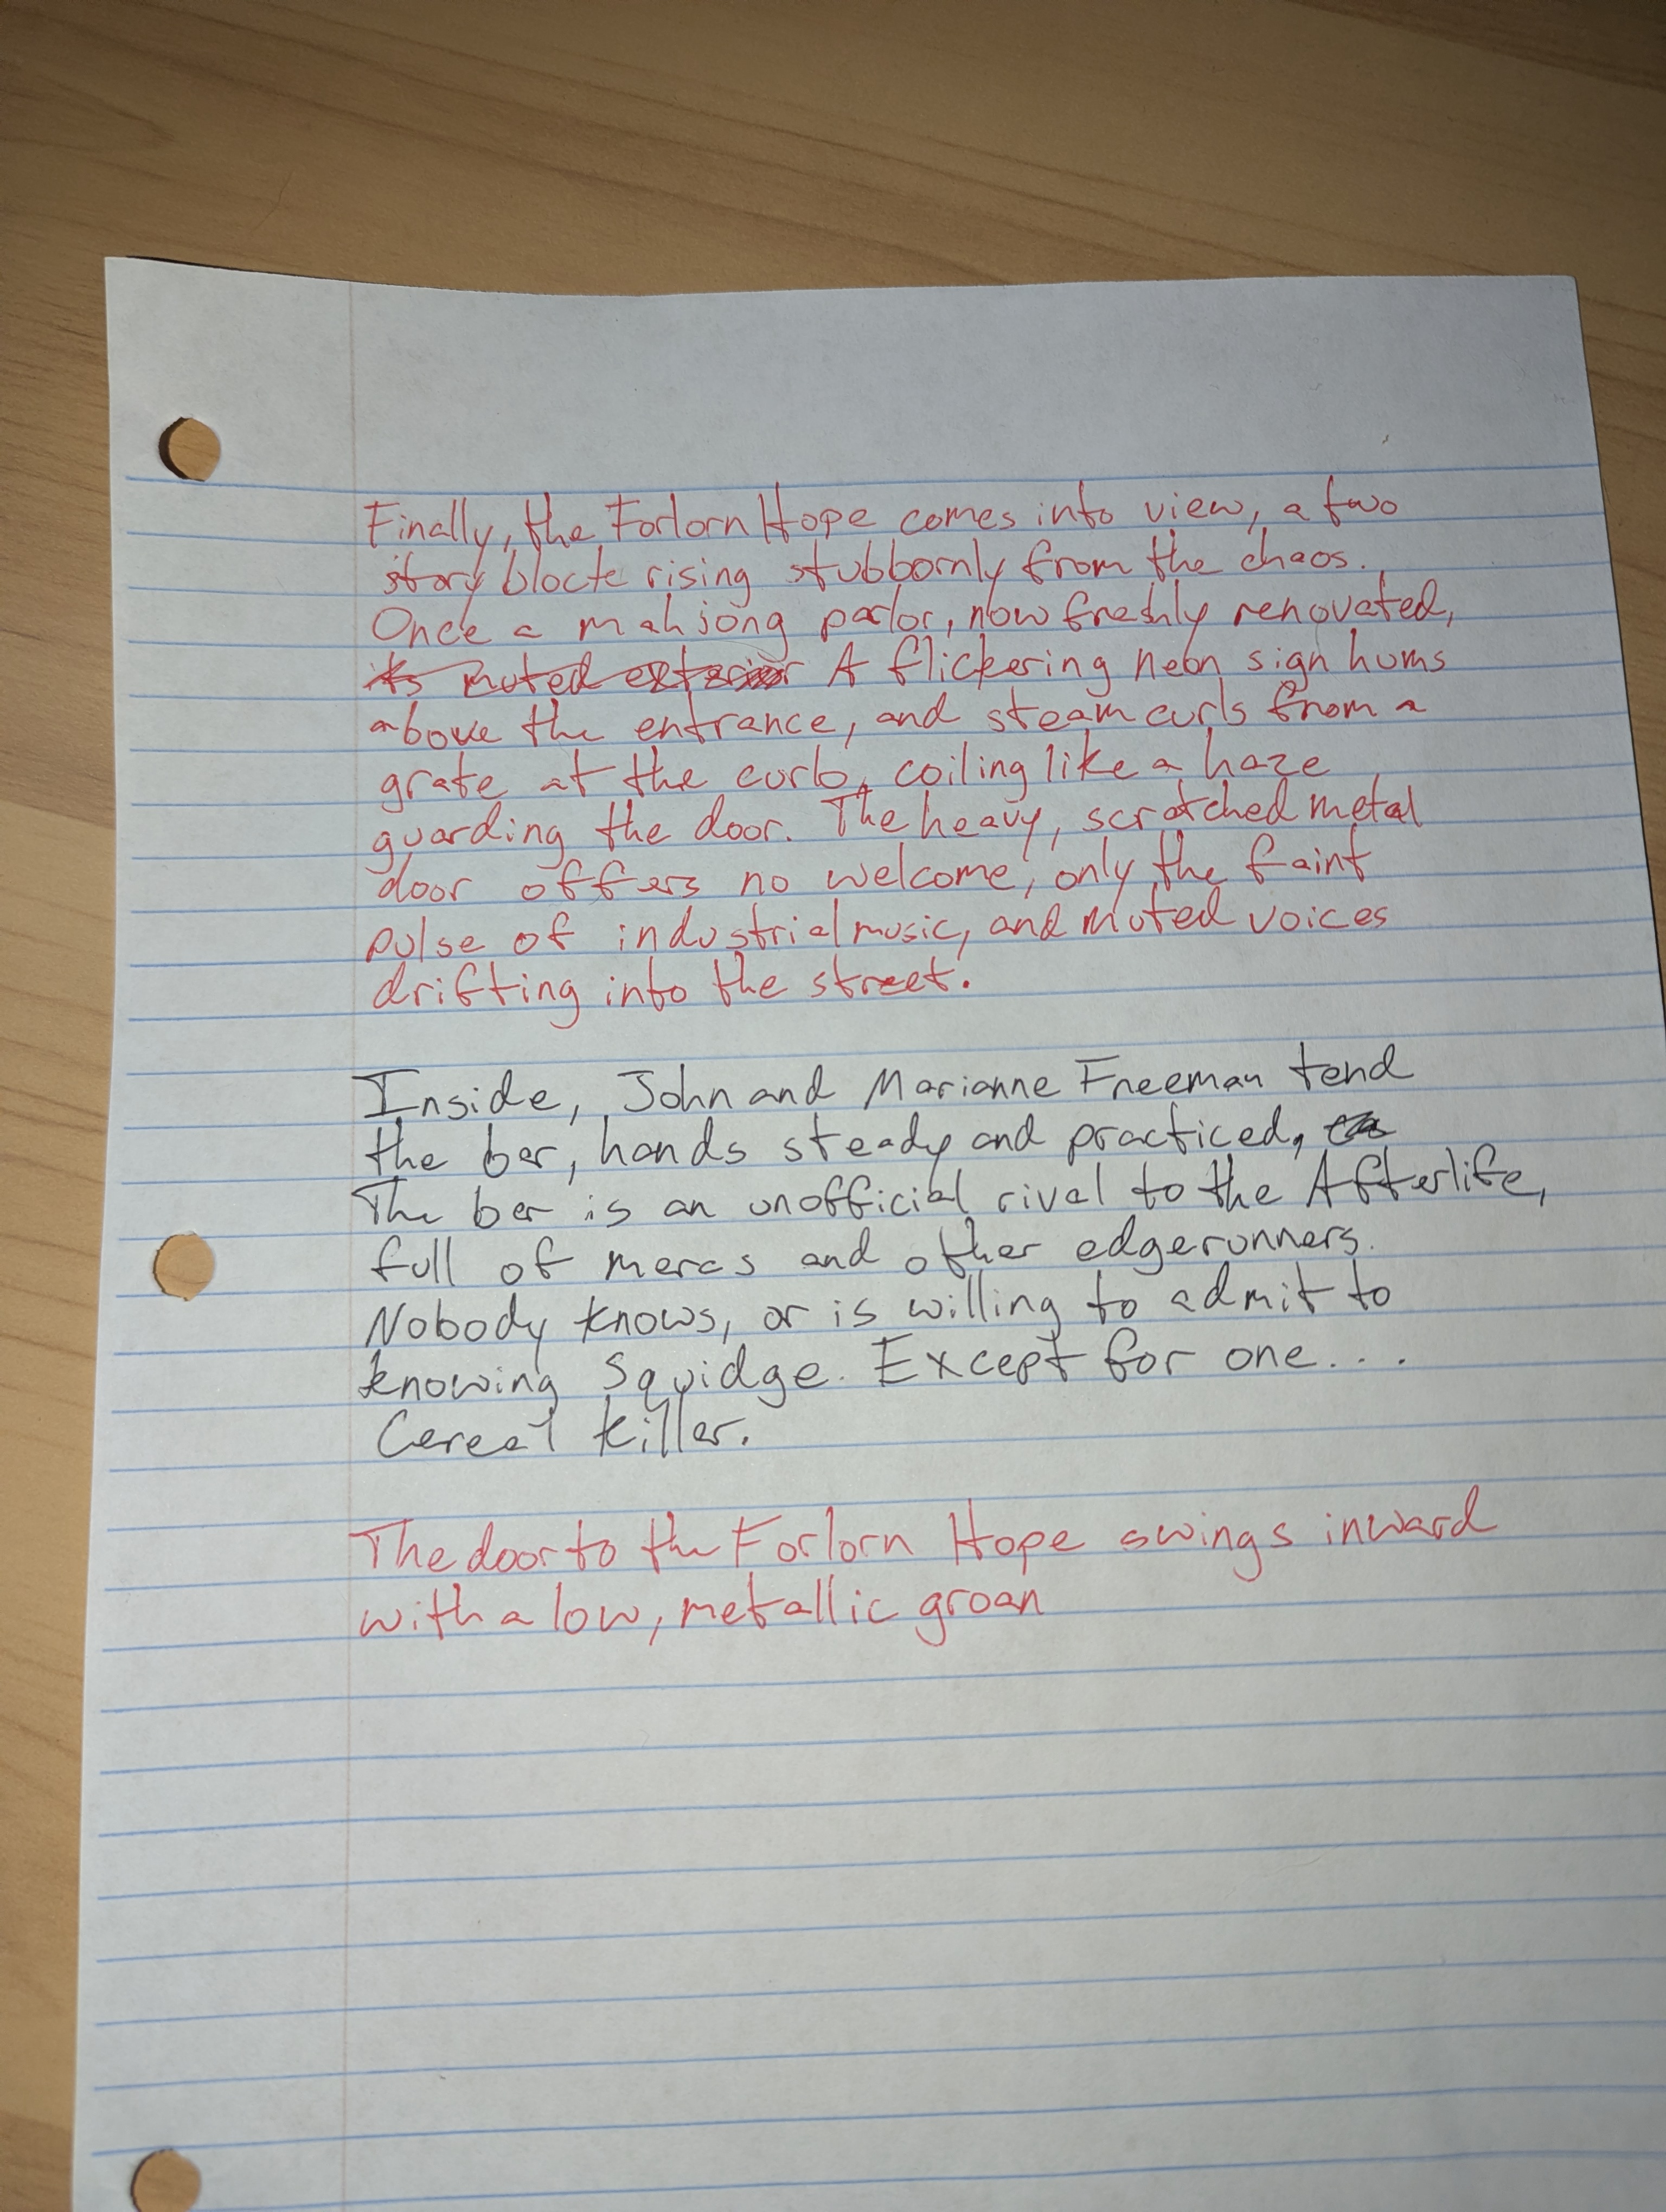 Finally, the Forlorn Hope comes into view, a two
story block rising stubbornly from the chaos.
Once a mahjong parlor, now freshly renovated,
its muted exterior A flickering neon sign hums
above the entrance, and steam curls from a
grate at the curb, coiling like a haze
guarding the door. The heavy, scratched metal
door offers no welcome, only the faint
pulse of industrial music, and muted voices
drifting into the street.
Inside, John and Marianne Freeman tend
the bar, hands steady and practiced,
The bar is an unofficial rival to the Afterlife,
full of mercs and other edgerunners.
Nobody knows, or is willing to admit to
knowing Squidge. Except for one...
Cereal Killer.
The door to the Forlorn Hope swings inward
with a low, metallic groan